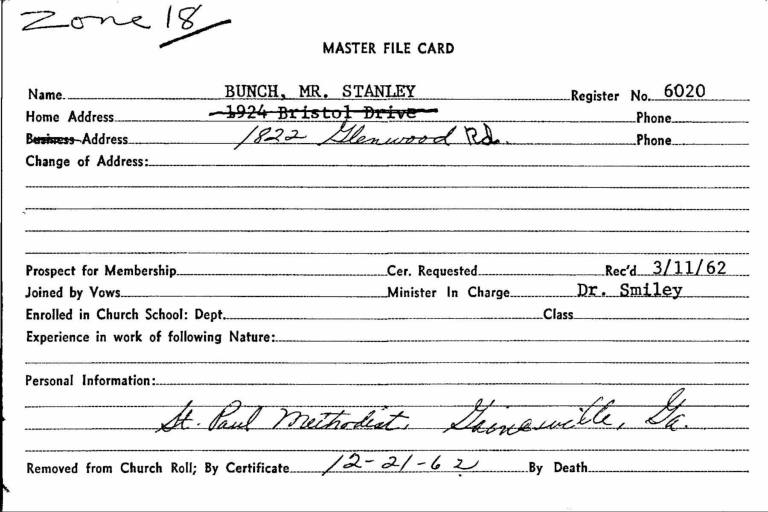 Zone 18
MASTER FILE CARD
Name BUNCH, MR. STANLEY Register No. 6020
Home Address 1924 Bristol Drive Phone
Business Address 1822 Glenwood Rd. Phone
Change of Address:
Prospect for Membership Cer. Requested Rec'd 3/11/62
Joined by Vows Minister In Charge Dr. Smiley
Enrolled in Church School: Dept. Class
Experience in work of following Nature:
Personal Information:
St. Paul Methodist, Gainesville, Ga.
Removed from Church Roll; By Certificate 12-21-62 By Death